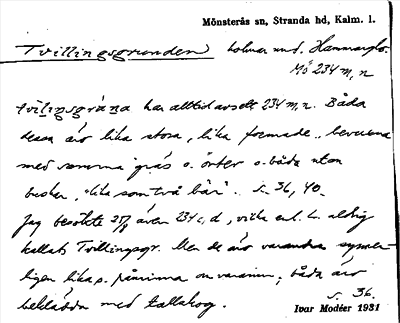 Mönsterås sn, Stranda hd, Kalm. l.
Tvillingsgrunden holmar und. Hammarglo.
Mö 234 m, n
har alltid avsett 234 m, n. Båda
dessa äro lika stora, lika formade, bevuxna
med samma gräs o. örter o. båda utan
buskar, "lika som två bär". s. 36, 40.
Jag besökte även 234 c, d, vilka enl. L. aldrig
kallats Tvillingsgr. Men de äro varandra
ligen lika o. påminna om varann, båda äro
beklädda med tallskog.
s. 36.
Ivar Modéer 1931